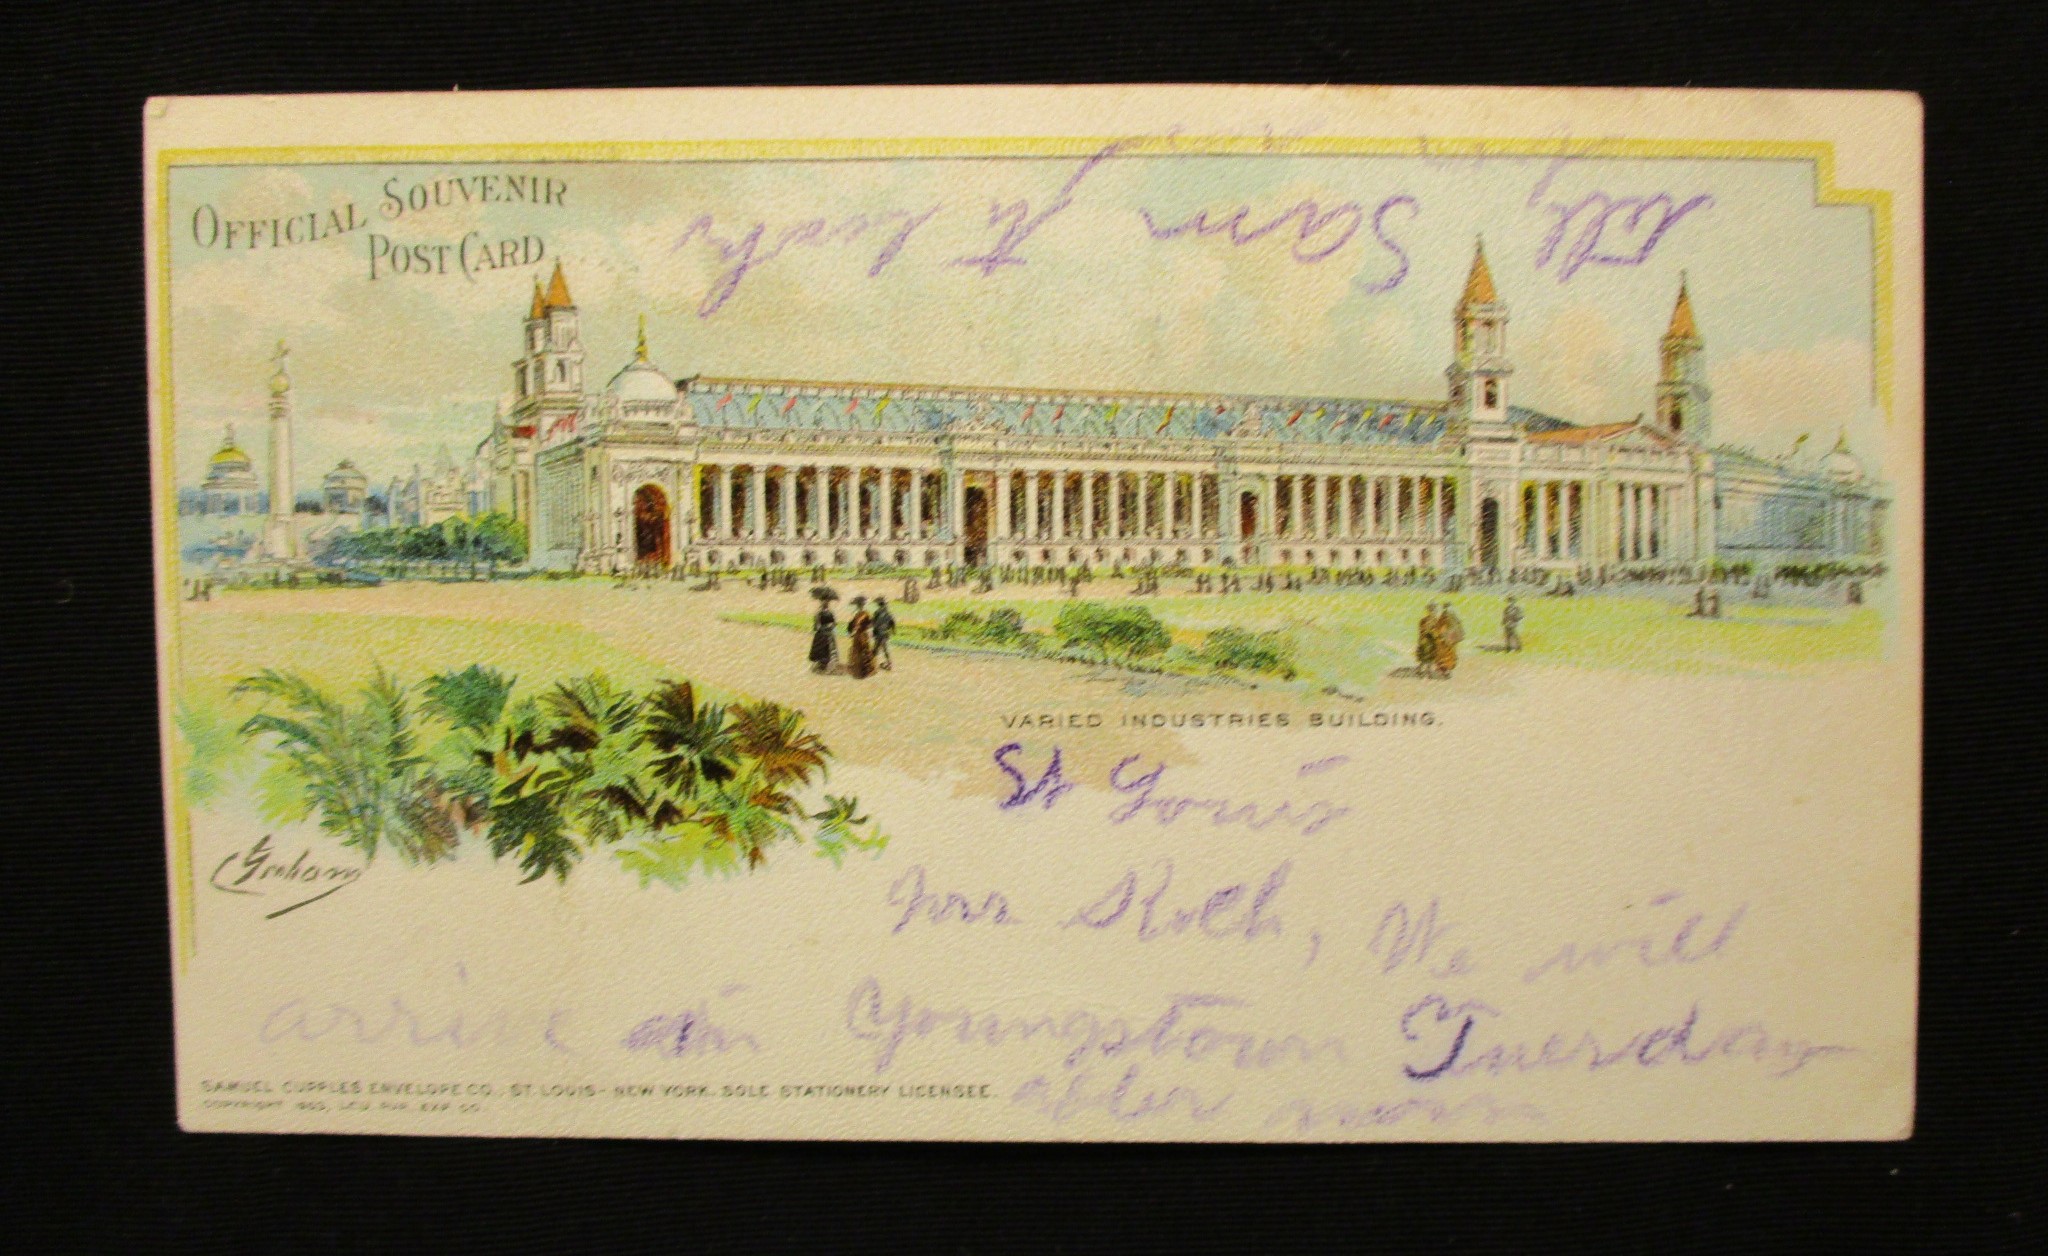 OFFICIAL SOUVENIR
POST CARD
VARIED INDUSTRIES BUILDING.
St Louis
C Graham
We will
arrive in Youngstown Tuesday
after noon
SAMUEL CUPPLES ENVELOPE CO., ST. LOUIS - NEW YORK. SOLE STATIONERY LICENSEE.
COPYRIGHT 1903, LOU. PUR. EXP. CO.
Tell Sam